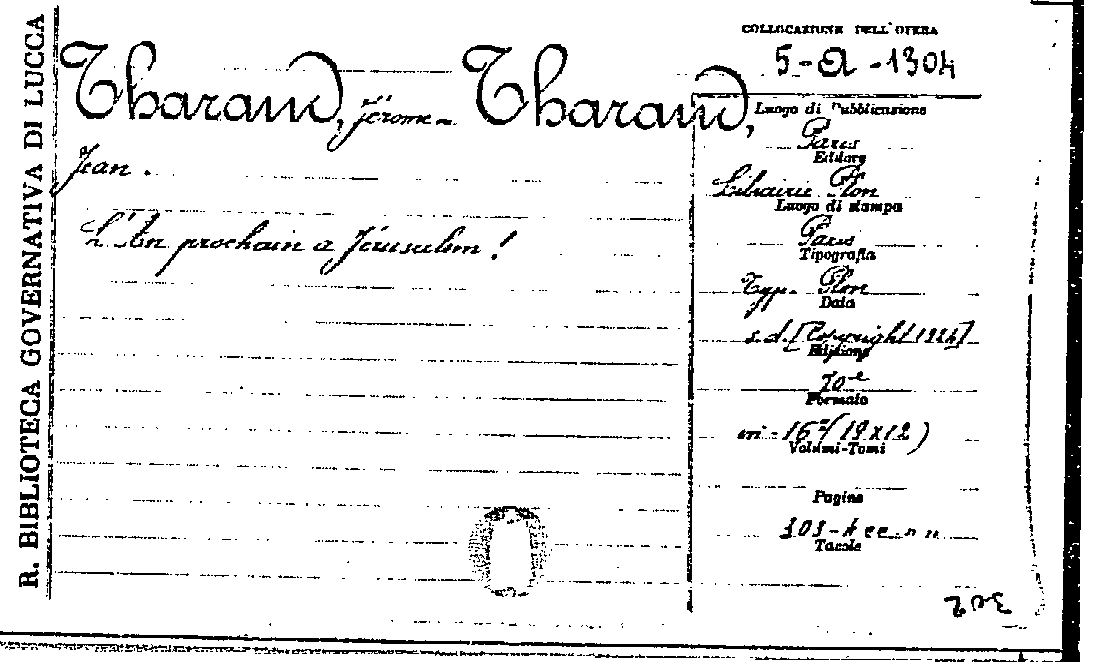 R. BIBLIOTECA GOVERNATIVA DI LUCCA
COLLOCAZIONE DELL'OPERA
5-A-1304
Tharaud, Jérome - Tharaud,
Jean.
L'An prochain a Jérusalem!
Luogo di Pubblicazione
Paris
Editore
Librairie Plon
Luogo di stampa
Paris
Tipografia
Typ. Plon
Data
s.d. [Copyright 1924]
Edizione
70e
Formato
in-16° (19x12)
Volumi-Tomi
Pagine
Tavole